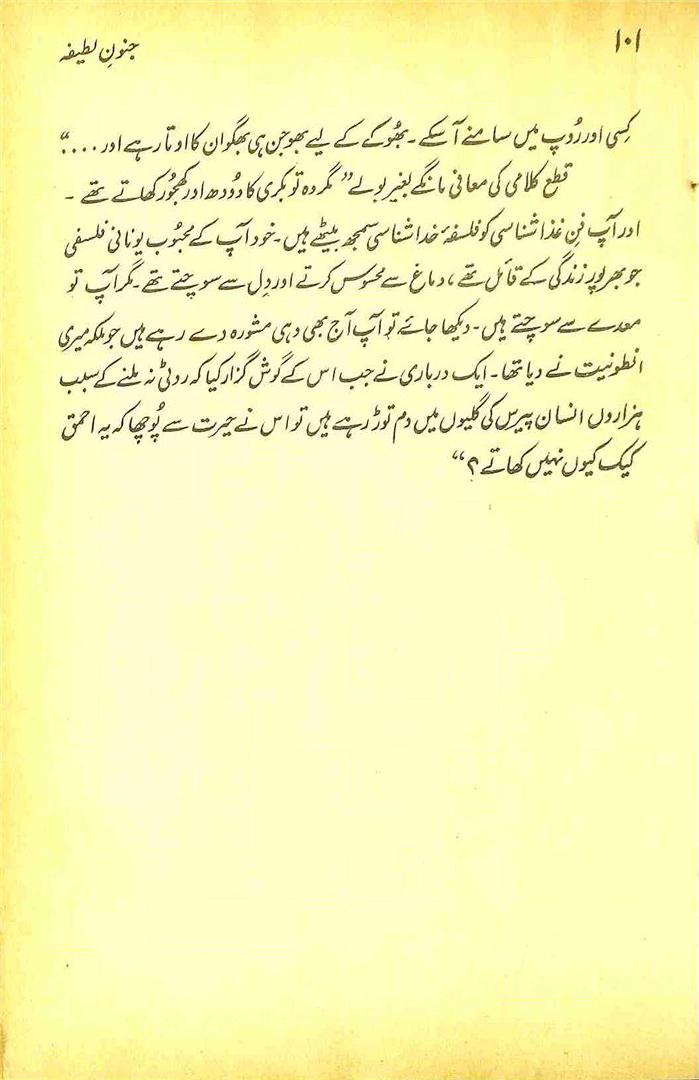 ۱۰۱
جنونِ لطیفہ
کِسی اور رُوپ میں سامنے آسکے۔ بھُوکے کے لیے بھوجن ہی بھگوان کا اوتار ہے اور ....“
قطع کلامی کی معافی مانگے بغیر بولے ”مگر وہ تو بکری کا دُودھ اور کھجُور کھاتے تھے۔
اور آپ فنِ غذا شناسی کو فلسفۂ خدا شناسی سمجھ بیٹھے ہیں۔ خود آپ کے محبُوب یونانی فلسفی
جو بھرپُور زندگی کے قائل تھے، دماغ سے محسُوس کرتے اور دِل سے سوچتے تھے۔ مگر آپ تو
معدے سے سوچتے ہیں۔ دیکھا جائے تو آپ آج بھی وہی مشورہ دے رہے ہیں جو ملکہ میری
انطونیت نے دیا تھا۔ ایک درباری نے جب اس کے گوش گزار کیا کہ روٹی نہ ملنے کے سبب
ہزاروں انسان پیرس کی گلیوں میں دم توڑ رہے ہیں تو اس نے حیرت سے پُوچھا کہ یہ احمق
کیک کیوں نہیں کھاتے؟“